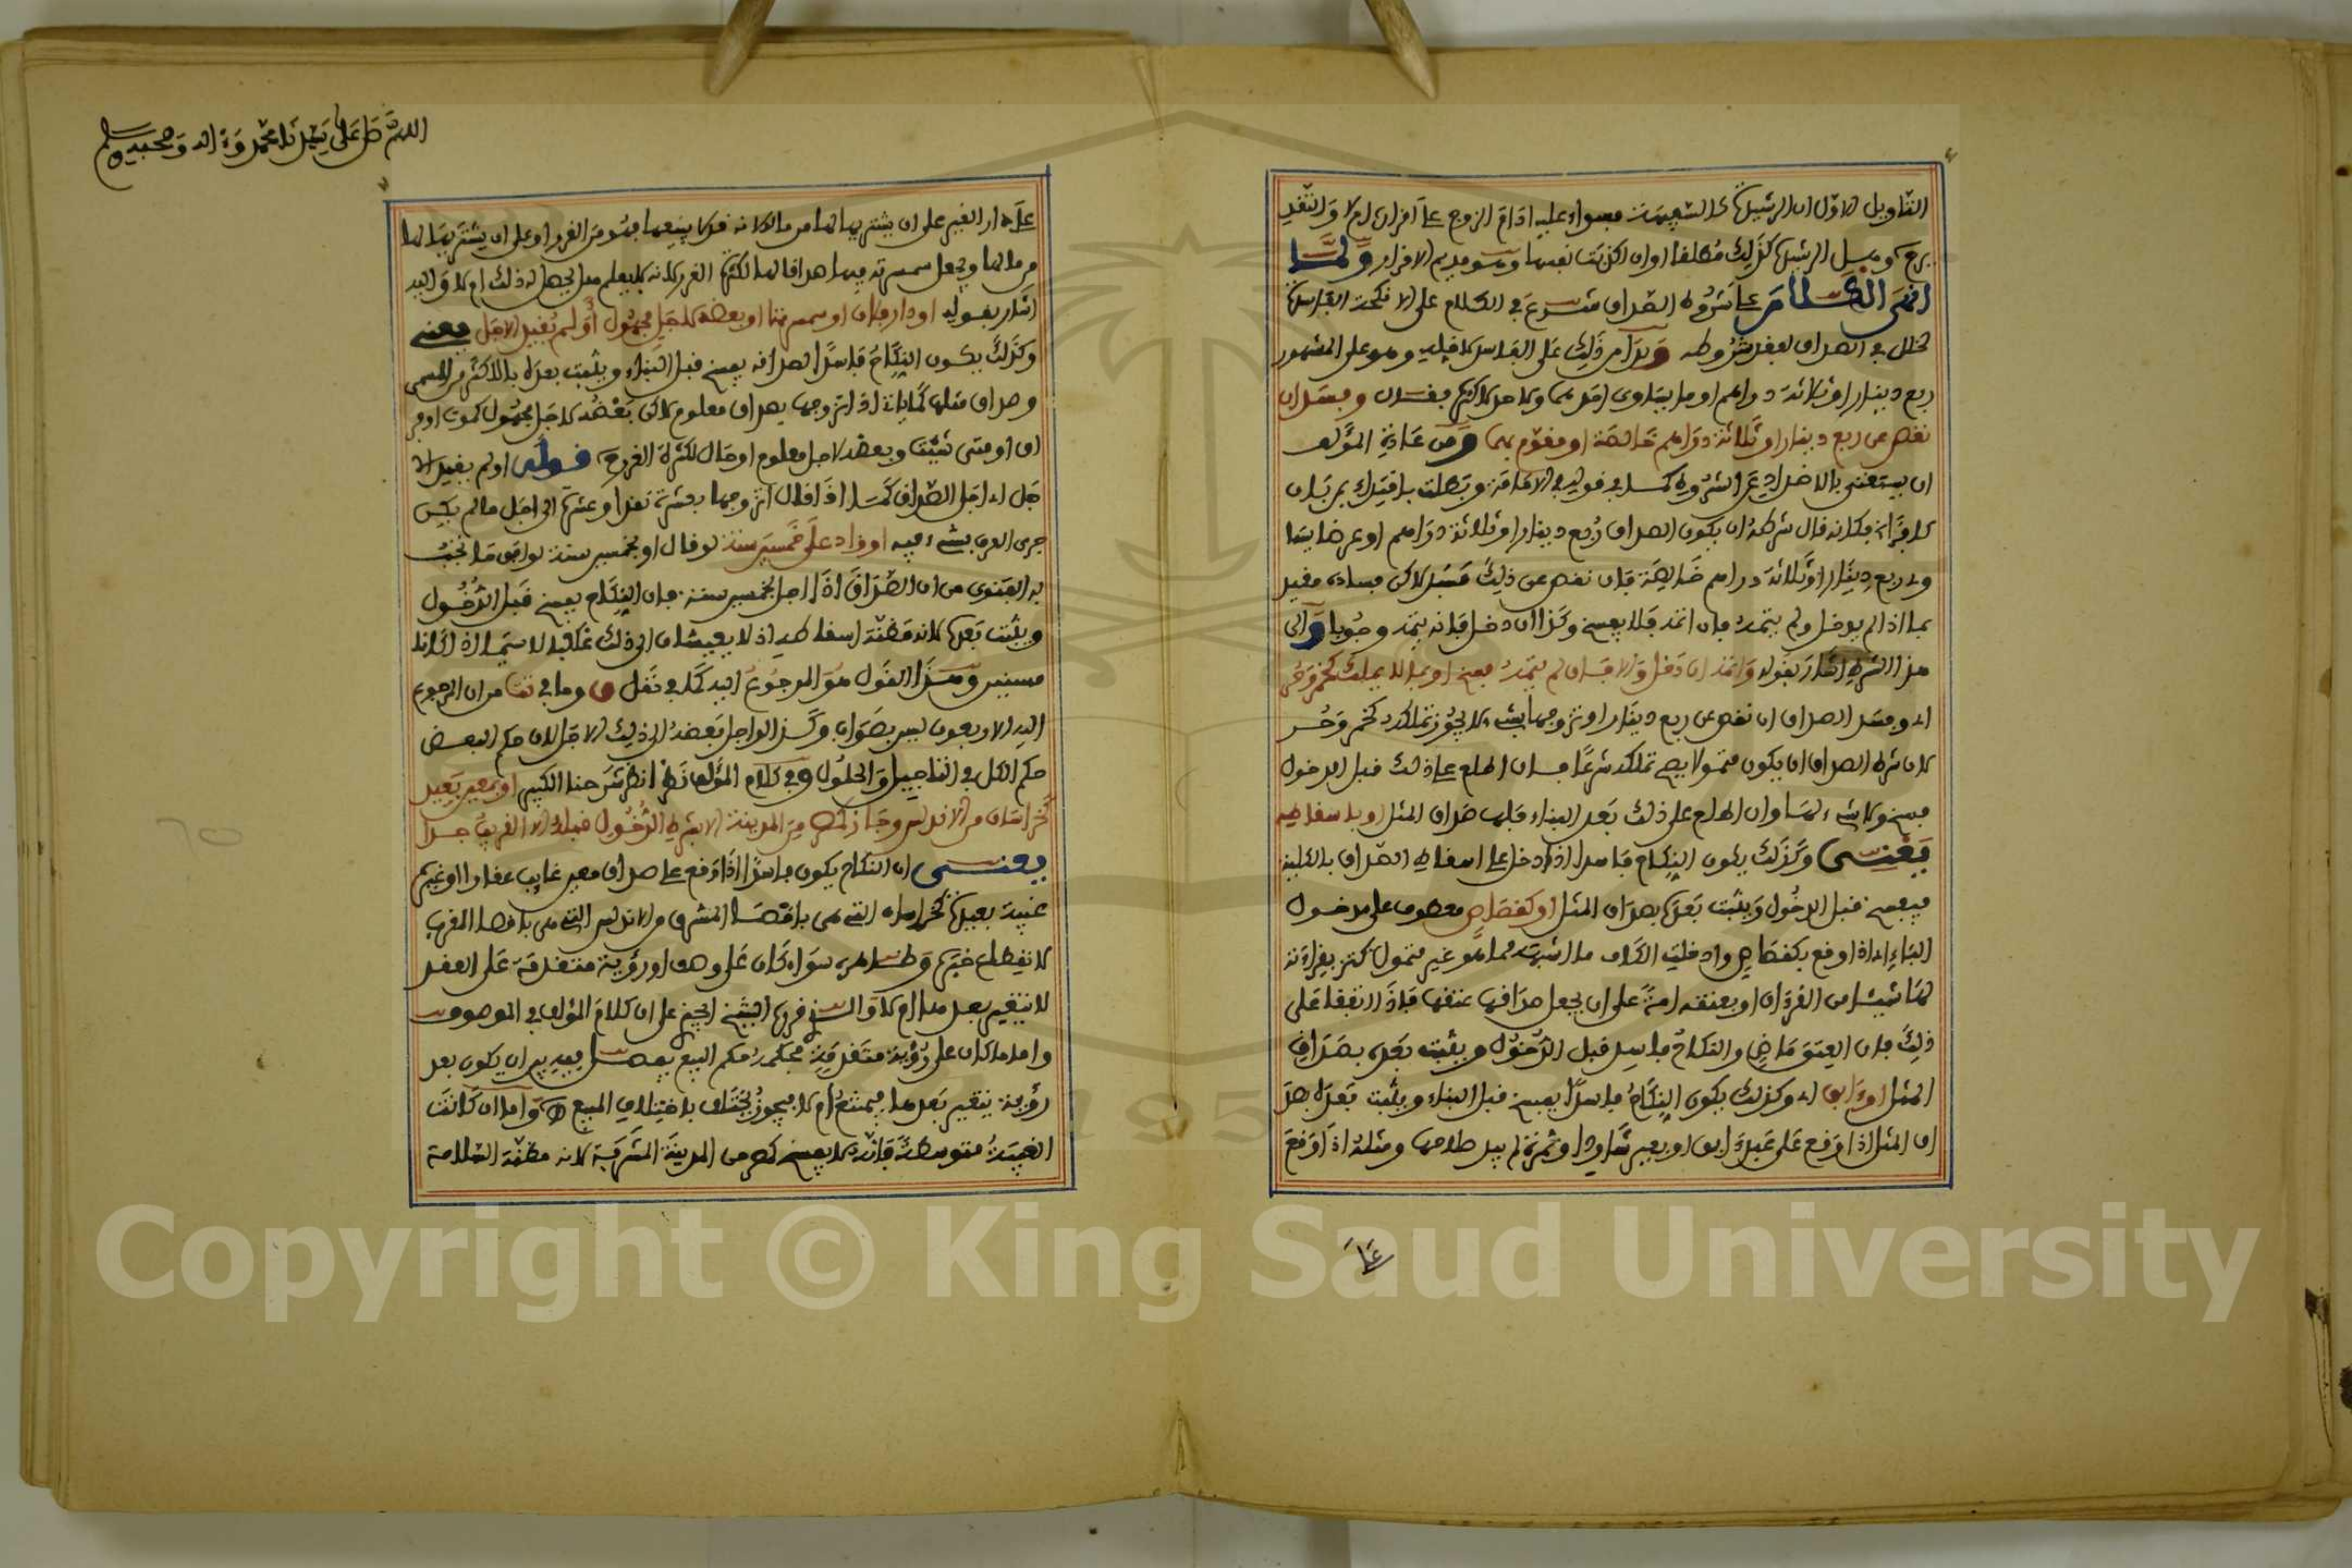 التاويل الاول ان الرشيدة كالسفيهة فسواء عليه اقام الزوج على اقراره ام لا والتقدير
يرجع وقيل الرشيدة كذلك مطلقا او ان اكذبت نفسها وهو مديم الاقرار ولما
انهى الكلام على شروط الصداق شرع في الكلام على الانكحة الفاسدة
لخلل في الصداق لفقد شروطه وبدا من ذلك على الفاسد لاقله وهو على المشهور
ربع دينار او ثلاثة دراهم او ما يساوي احدهما ولا حد لاكثره فقال وفسد ان
نقص عن ربع دينار او ثلاثة دراهم خالصة او مقوم بهما ومن عادة المؤلف
ان يستغني بالاضداد عن الشروط كما في قوله في الامامة وبطلت باقتداء بمن بان
كافرا فكانه قال شرطه ان يكون الصداق ربع دينار او ثلاثة دراهم او عرضا يساوي
ربع دينار او ثلاثة دراهم خالصة فان نقص عن ذلك فسد لاكن فساده مقيد
بما اذا لم يدخل ولم يتمه فان اتمه فلا يفسخ وكذا ان دخل فانه يتمه وجوبا والى
هذا الشرط اشار بقوله واتمه ان دخل والا فان لم يتمه فسخ او بما لا يملك كخمر وحر
اي وفسد الصداق ان نقص عن ربع دينار او تزوجها بشيء لا يجوز تملكه كخمر وحر
لان شرط الصداق ان يكون متمولا يصح تملكه شرعا فان اطلع على ذلك قبل الدخول
فسخ ولا شيء لها وان اطلع على ذلك بعد البناء فلها صداق المثل او باسقاطه
يعني وكذلك يكون النكاح فاسدا اذا دخل على اسقاط الصداق بالكلية
فيفسخ قبل الدخول ويثبت بعده بصداق المثل او كقصاص معطوف على مدخول
الباء اي اذا وقع بكقصاص وادخلت الكاف ما اشبهه مما هو غير متمول كتزويجها بقراءته
لها شيئا من القرءان او بعتقه امة على ان يجعل صداقها عتقها فاذا اتفقا على
ذلك فان العتق ماض والنكاح فاسد قبل الدخول ويثبت بعده بصداق
المثل او ءابق اي وكذلك يكون النكاح فاسدا يفسخ قبل البناء ويثبت بعده بصد
اق المثل اذا وقع على عبد ءابق او بعير شارد او ثمرة لم يبد صلاحها ومثله اذا وقع
على
اللهم صل على سيدنا محمد وءاله وصحبه وسلم
على دار الغير على ان يشتريها لها من ماله لانه قد لا يبيعها فهو من الغرر او على ان يشتريها لها
من مالها ويجعل سمسرته فيها صداقا لها لكثرة الغرر لانه لا يعلم هل يحصل له ذلك ام لا واليه
اشار بقوله او دار فلان او سمسرتها او بعضه لاجل مجهول او لم يقيد الاجل يعني
وكذلك يكون النكاح فاسدا لصداقه يفسخ قبل البناء ويثبت بعده بالاكثر من المسمى
وصداق مثلها كما ياتي اذا تزوجها بصداق معلوم لاكن بعضه لاجل مجهول كموت او فر
اق او متى شئت وبعضه لاجل معلوم او حال لكثرة الغرر قوله او لم يقيد الا
جل اي اجل الصداق كما اذا قال اتزوجها بعشرة نقدا وعشرة الى اجل ما لم يكن
جرى العرف بشيء فيه او زاد على خمسين سنة لو قال او بخمسين سنة لوافق ما تجب
به الفتوى من ان الصداق اذا اجل لخمسين سنة فان النكاح يفسخ قبل الدخول
ويثبت بعده لانه مظنة اسقاطه اذ لا يعيشان الى ذلك غالبا لا سيما اذا كانا
مسنين وهذا القول هو المرجوع اليه كما في نقل ق وما في تت من ان المرجوع
اليه الاربعون ليس بصواب وكذا لو اجل بعضه الى ذلك الاجل لان حكم البعض
حكم الكل في التاجيل والحلول وفي كلام المؤلف نظر انظر شرحنا الكبير او بمعين بعيد
كخراسان من الاندلس وجاز كمصر من المدينة لا بشرط الدخول قبله الا القريب جدا
يعني ان النكاح يكون فاسدا اذا وقع على صداق معين غايب عقارا او غيره
غيبة بعيدة كخراسان التي هي باقصى المشرق والاندلس التي هي باقصا المغرب
لانقطاع خبره وظاهره سواء كان على وصف او رؤية متقدمة على العقد
لا يتغير بعدها ام لا والذي قرره الشيخ احمد على ان كلام المؤلف في الموصوف
واما ما كان على رؤية متقدمة فحكمه حكم البيع يفصل فيه بين ان يكون بعد
رؤية يتغير بعدها فيمتنع ام لا فيجوز يختلف باختلاف المبيع اهـ واما ان كانت
الغيبة متوسطة فانه لا يفسخ كمصر من المدينة المشرفة لانه مظنة السلامة